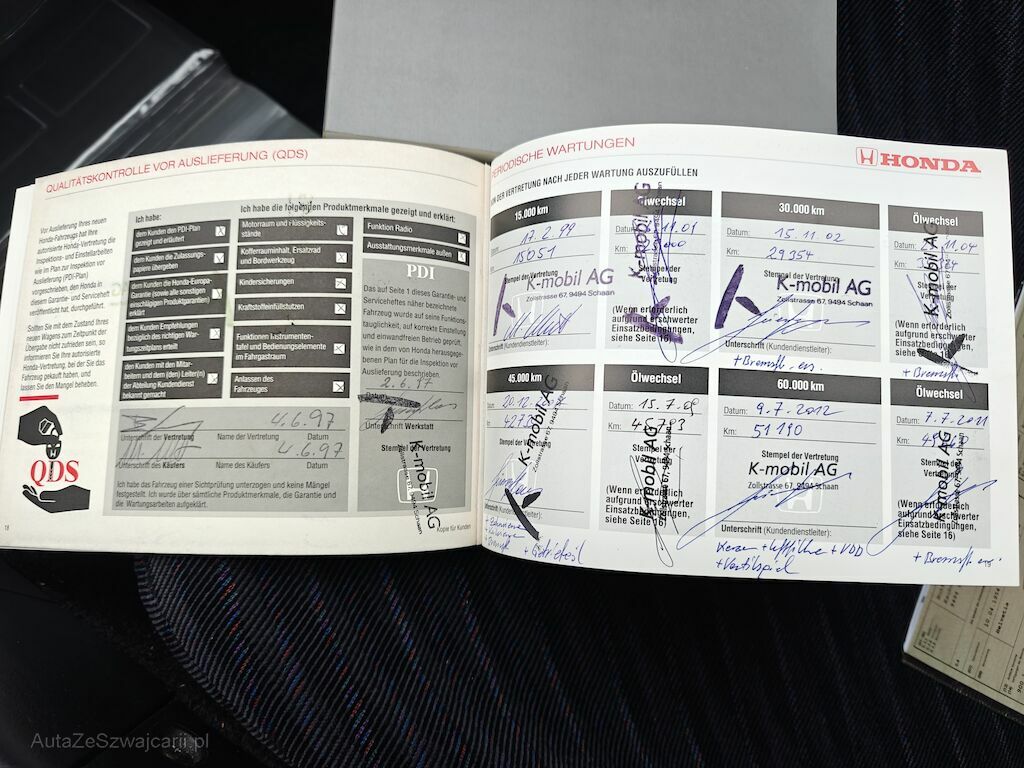 QUALITÄTSKONTROLLE VOR AUSLIEFERUNG (QDS)
Vor Auslieferung Ihres neuen
Honda-Fahrzeugs hat Ihre
autorisierte Honda-Vertretung die
Inspektions- und Einstellarbeiten
wie im Plan zur Inspektion vor
Auslieferung (PDI-Plan)
vorgeschrieben, den Honda in
diesem Garantie- und Serviceheft
veröffentlicht hat, durchgeführt.
Sollten Sie mit dem Zustand Ihres
neuen Wagens zum Zeitpunkt der
Übergabe nicht zufrieden sein, so
informieren Sie Ihre autorisierte
Honda-Vertretung, bei der Sie das
Fahrzeug gekauft haben, um
lassen Sie den Mangel beheben.
QDS
18
Ich habe:
dem Kunden den PDI-Plan
gezeigt und erläutert
dem Kunden die Zulassungs-
papiere übergeben
dem Kunden die Honda-Europa-
Garantie (sowie alle sonstigen
einschlägigen Produktgarantien)
erklärt
dem Kunden Empfehlungen
bezüglich des richtigen War-
tungszeitplans erteilt
den Kunden mit den Mitar-
beitern und dem (den) Leiter(n)
der Abteilung Kundendienst
bekannt gemacht
Ich habe die folgenden Produktmerkmale gezeigt und erklärt:
Motorraum und Flüssigkeits-
stände
Kofferrauminhalt, Ersatzrad
und Bordwerkzeug
Kindersicherungen
Kraftstoffeinfüllstutzen
Funktionen Instrumenten-
tafel und Bedienungselemente
im Fahrgastraum
Anlassen des
Fahrzeuges
Funktion Radio
Ausstattungsmerkmale außen
PDI
Das auf Seite 1 dieses Garantie- und
Serviceheftes näher bezeichnete
Fahrzeug wurde auf seine Funktions-
tauglichkeit, auf korrekte Einstellung
und einwandfreien Betrieb geprüft,
wie in dem von Honda herausgege-
benen Plan für die Inspektion vor
Auslieferung beschrieben.
2.6.97
Unterschrift Werkstatt
Stempel der Vertretung
K-mobil AG
Zollstrasse 67, 9494 Schaan
Kopie für Kunden
4.6.97
Unterschrift der Vertretung Name der Vertretung Datum
4.6.97
Unterschrift des Käufers Name des Käufers Datum
Ich habe das Fahrzeug einer Sichtprüfung unterzogen und keine Mängel
festgestellt. Ich wurde über sämtliche Produktmerkmale, die Garantie und
die Wartungsarbeiten aufgeklärt.
PERIODISCHE WARTUNGEN
HONDA
VON DER VERTRETUNG NACH JEDER WARTUNG AUSZUFÜLLEN
15.000 km
17.2.99
15051
K-mobil AG
Zollstrasse 67, 9494 Schaan
Unterschrift (Kundendienstleiter):
Ölwechsel
Datum:
Km:
Stempel der
Vertretung
K-mobil AG
(Wenn erforderlich
aufgrund erschwerter
Einsatzbedingungen,
siehe Seite 16)
30.000 km
Datum: 15.11.02
Km: 29354
Stempel der Vertretung
K-mobil AG
Zollstrasse 67, 9494 Schaan
Unterschrift (Kundendienstleiter):
Ölwechsel
Datum:
Km:
K-mobil AG
Zollstrasse 67, 9494 Schaan
(Wenn erforderlich
aufgrund erschwerter
Einsatzbedingungen,
siehe Seite 16)
45.000 km
Datum: 20.12.
Km:
Stempel der Vertretung
K-mobil AG
Ölwechsel
Datum: 15.7.09
Km:
Stempel der
Vertretung
K-mobil AG
(Wenn erforderlich
aufgrund erschwerter
Einsatzbedingungen,
siehe Seite 16)
60.000 km
Datum: 9.7.2012
Km: 51190
Stempel der Vertretung
K-mobil AG
Zollstrasse 67, 9494 Schaan
Unterschrift (Kundendienstleiter):
Kerzen + Luftfilter + VDD
+ Ventilspiel
Ölwechsel
Datum: 7.7.2011
Km:
K-mobil AG
Zollstrasse 67, 9494 Schaan
(Wenn erforderlich
aufgrund erschwerter
Einsatzbedingungen,
siehe Seite 16)
10.04.1954
Helvetia
AutaZeSzwajcarii.pl